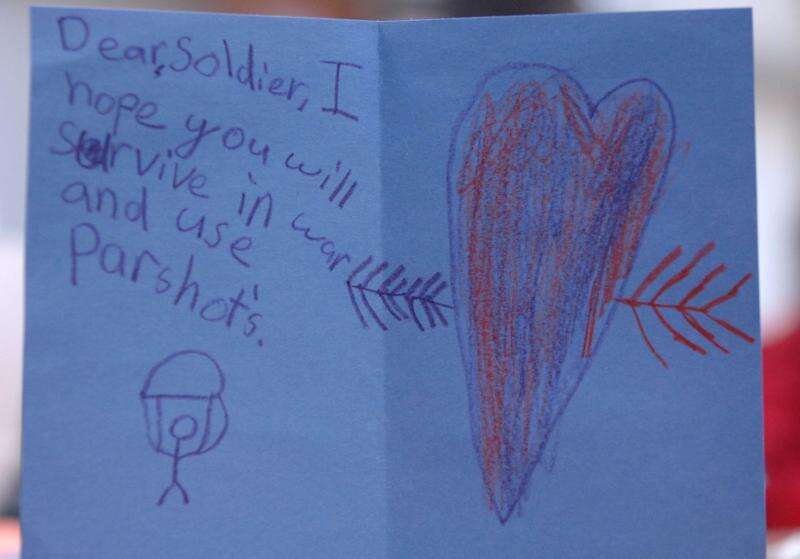 Dear, Soldier, I
hope you will
survive in war
and use
Parshot's.